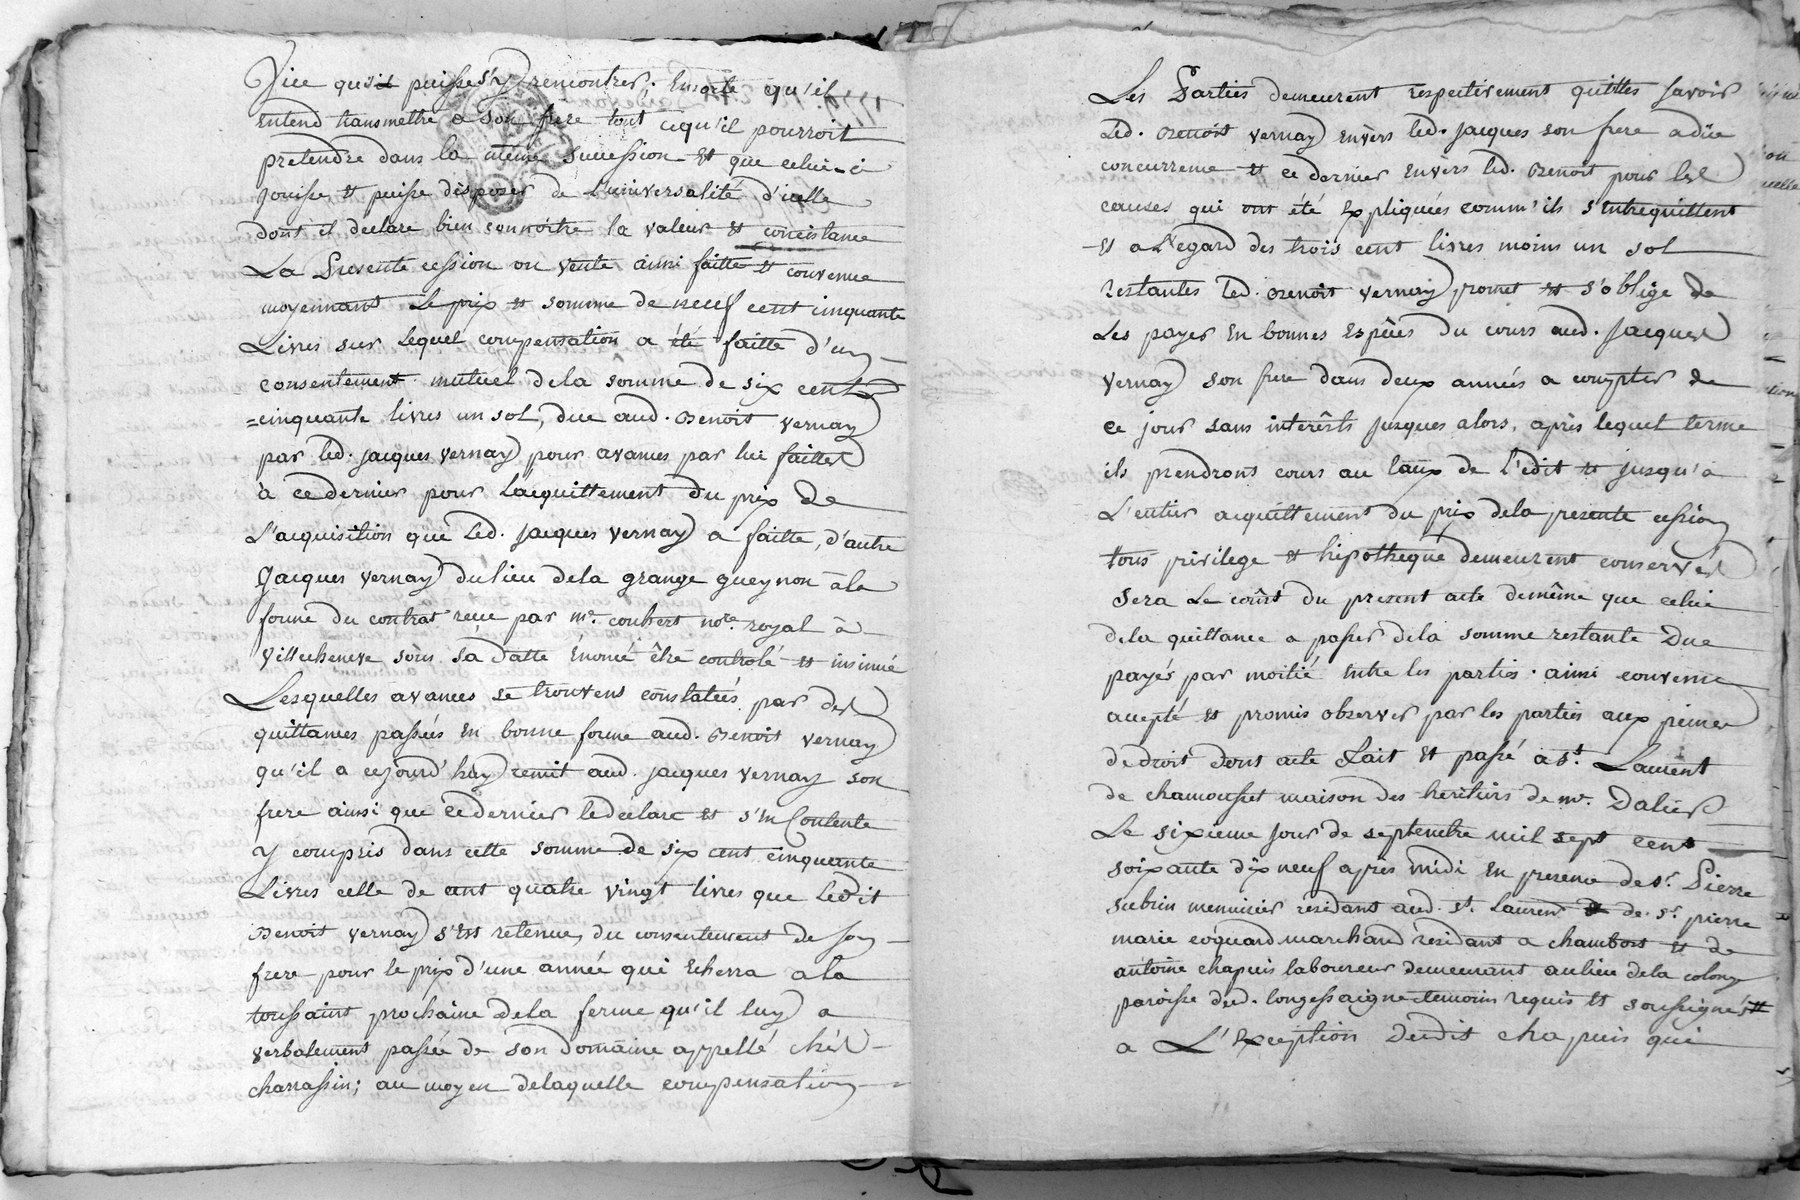 Vice qu'il puisse s'y rencontrer; Ensorte qu'il
entend transmettre a son frere tout cequ'il pourroit
pretendre dans la même succession Et que celui-ci
jouisse Et puisse disposer de L'universalité d'icelle
dont il declare bien connoitre la valeur Et concistance
La Presente cession ou vente ainsi faitte Et convenue
moyennant Le prix Et somme de neuf cent cinquante
Livres sur Lequel compensation a été faitte d'un
consentement mutuel dela somme de six cent
=cinquante livres un sol, due aud. Benoit Vernay
par led. jacques vernay pour avances par lui faittes
à cedernier pour Lacquittement du prix de
L'acquisition que Led. jacques vernay a faitte, d'autre
Jacques vernay dulieu dela grange gueynon àla
forme du contrat reçu par me. coubert nore. royal à
villecheneve sous sa datte Enoncé être controlé Et insinué
Lesquelles avances se trouvens constatées par des
quittances passées En bonne forme aud. Benoit vernay
qu'il a cejourd'huy remit aud. jacques vernay son
frere ainsi que cedernier ledeclare Et s'en Contente
y compris dans cette somme de six cent cinquante
Livres celle de cent quatre vingt livres que Ledit
Benoit vernay s'Est retenue, du consentement de son
frere pour le prix d'une année qui Echerra ala
toussaint prochaine dela ferme qu'il luy a
verbalement passée de son domaine appellé chés
charrassin; au moyen delaquelle compensation
Les Parties demeurent respectivement quittes savoir
Led. Benoit vernay Envers led. jacques son frere a düe
concurrence Et ce dernier Envers led. Benoit pour les
causes qui ont été Expliquées comm'ils s'Entrequittent
Et a L'egard des trois cent livres moins un sol
restantes Led. Benoit vernay promet Et s'oblige de
Les payer En bonnes Espèces du cours aud. Jacques
vernay son frere dans deux années a compter de
ce jour sans interêts jusques alors, après lequel terme
ils prendrons cours au taux de l'édit Et jusqu'a
L'entier acquittement du prix dela presente cession
tous privilege Et hipotheque demeurent conservés
sera Le coûst du present acte demême que celui
dela quittance a passer dela somme restante Due
payés par moitié Entre les parties. ainsi convenu
accepté Et promis observer par les parties aux peines
dedroit dont acte Fait Et passé à St. Laurent
de chamousset maison des heritiers de mr. Dalier
Le sixieme jour de septembre mil sept cent
soixante dix neuf après midi En presence de sr. Pierre
subrin menuisier residant aud. st. Laurent de sr. pierre
marie coquard marchand residant a chambost Et de
antoine chapuis laboureur demeurant aulieu dela colong
paroisse dud. longessaigne temoins requis Et soussignés
a L'Exception Dudit chapuis qui